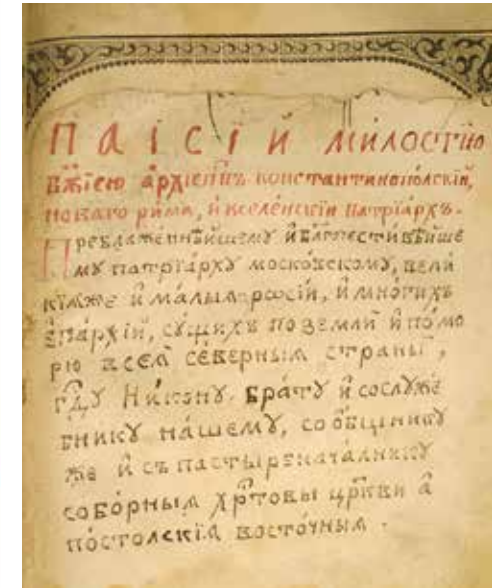 ПАІСІЙ МИЛОСТІЮ
бж҃їею а҆рхїепⷭ҇пъ константинопо́лскїй,
но́ваго ри́ма, и҆ вселе́нскїи патрїа́рхъ.
Преблаже́ннѣйшему и҆ бл҃гочести́вѣйше
му патрїа́рхꙋ моско́вскомꙋ, вели
кїѧ́же и҆ ма́лыѧ росі́и, и҆ мно́гихъ
є҆па́рхїй, сꙋ́щихъ по земли̑ и҆ по́мо
рю всеѧ̀ сѣ́верныѧ страны̀,
гдⷭ҇ꙋ Ни́конꙋ. бра́тꙋ и҆ сослꙋже́
бникꙋ на́шемꙋ, соо́бщникꙋ
же и҆ съпастыренача́лникꙋ
собо́рныѧ хрⷭ҇то́вы цр҃кви а҆
по́столскїѧ восто́чныѧ.